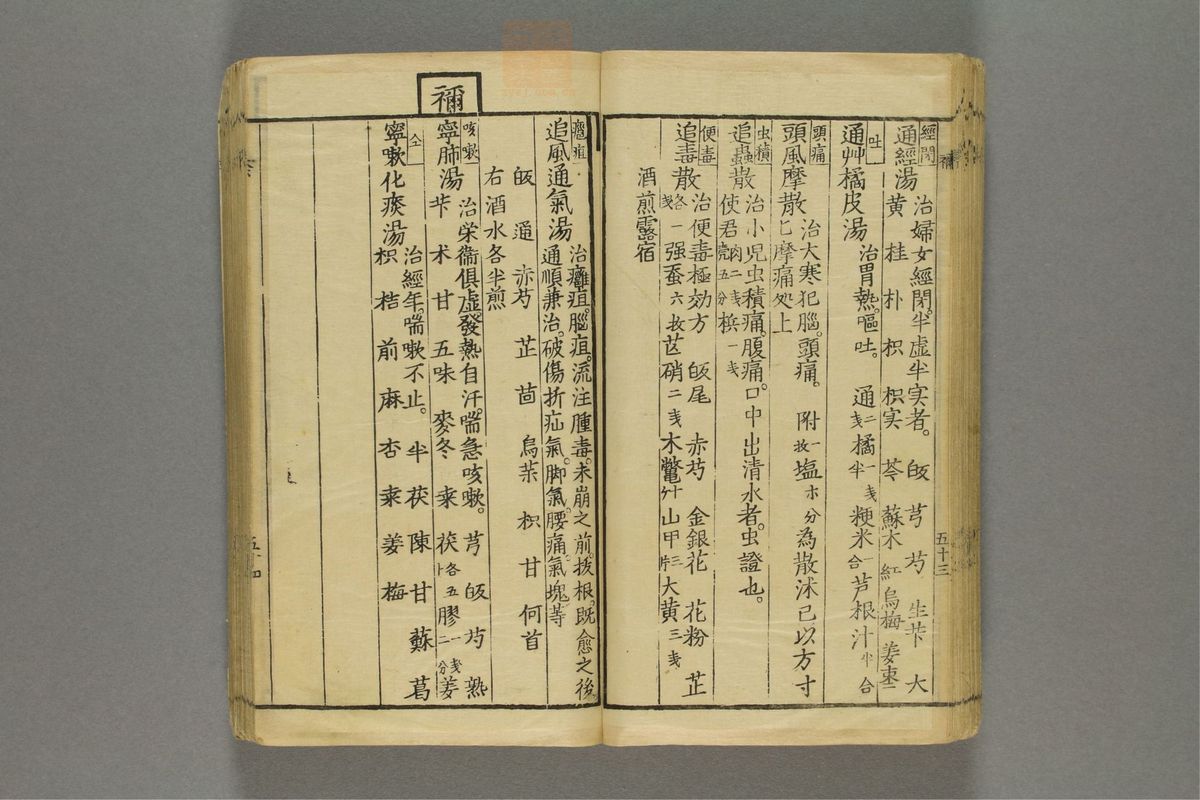 五十三
經閉
通經湯
治婦女經閉。半虛半实者。 皈 芎 芍 生芐 大
黄 桂 朴 枳 枳实 芩 蘇木 紅 烏梅 姜 枣二
吐
通艸橘皮湯
治胃熱。嘔吐。 通二戋 橘一戋半 粳米一合 芦根汁半合
頭痛
頭風摩散
治大寒犯腦。頭痛。 附一枚 塩 分 為散沭已以方寸
匕摩痛処上
虫積
追蟲散
治小児虫積痛。腹痛。口中出清水者。虫證也。
使君肉二戋壳五分 梹一戋
便毒
追毒散
治便毒極効方 皈尾 赤芍 金銀花 花粉 芷
各一戋 强蚕六枚 芒硝二戋 木鱉 山甲三片 大黄三戋
酒煎露宿
禰
癰疽
追風通氣湯
治癰疽。腦疽。流注腫毒。未崩之前。拔根。既愈之後。
通順兼治。破傷折疝氣。脚氣。腰痛。氣塊等
皈 通 赤芍 芷 茴 烏茱 枳 甘 何首
右酒水各半煎
咳嗽
寧肺湯
治栄衞俱虛。發熱自汗。喘急咳嗽。 芎 皈 芍 熟
芐 术 甘 五味 麥冬 桒 茯各五卜 膠一戋二分 姜
仝
寧嗽化痰湯
治經年。喘嗽不止。 半 茯 陳 甘 蘇 葛
枳 桔 前 麻 杏 桒 姜 梅
五十四